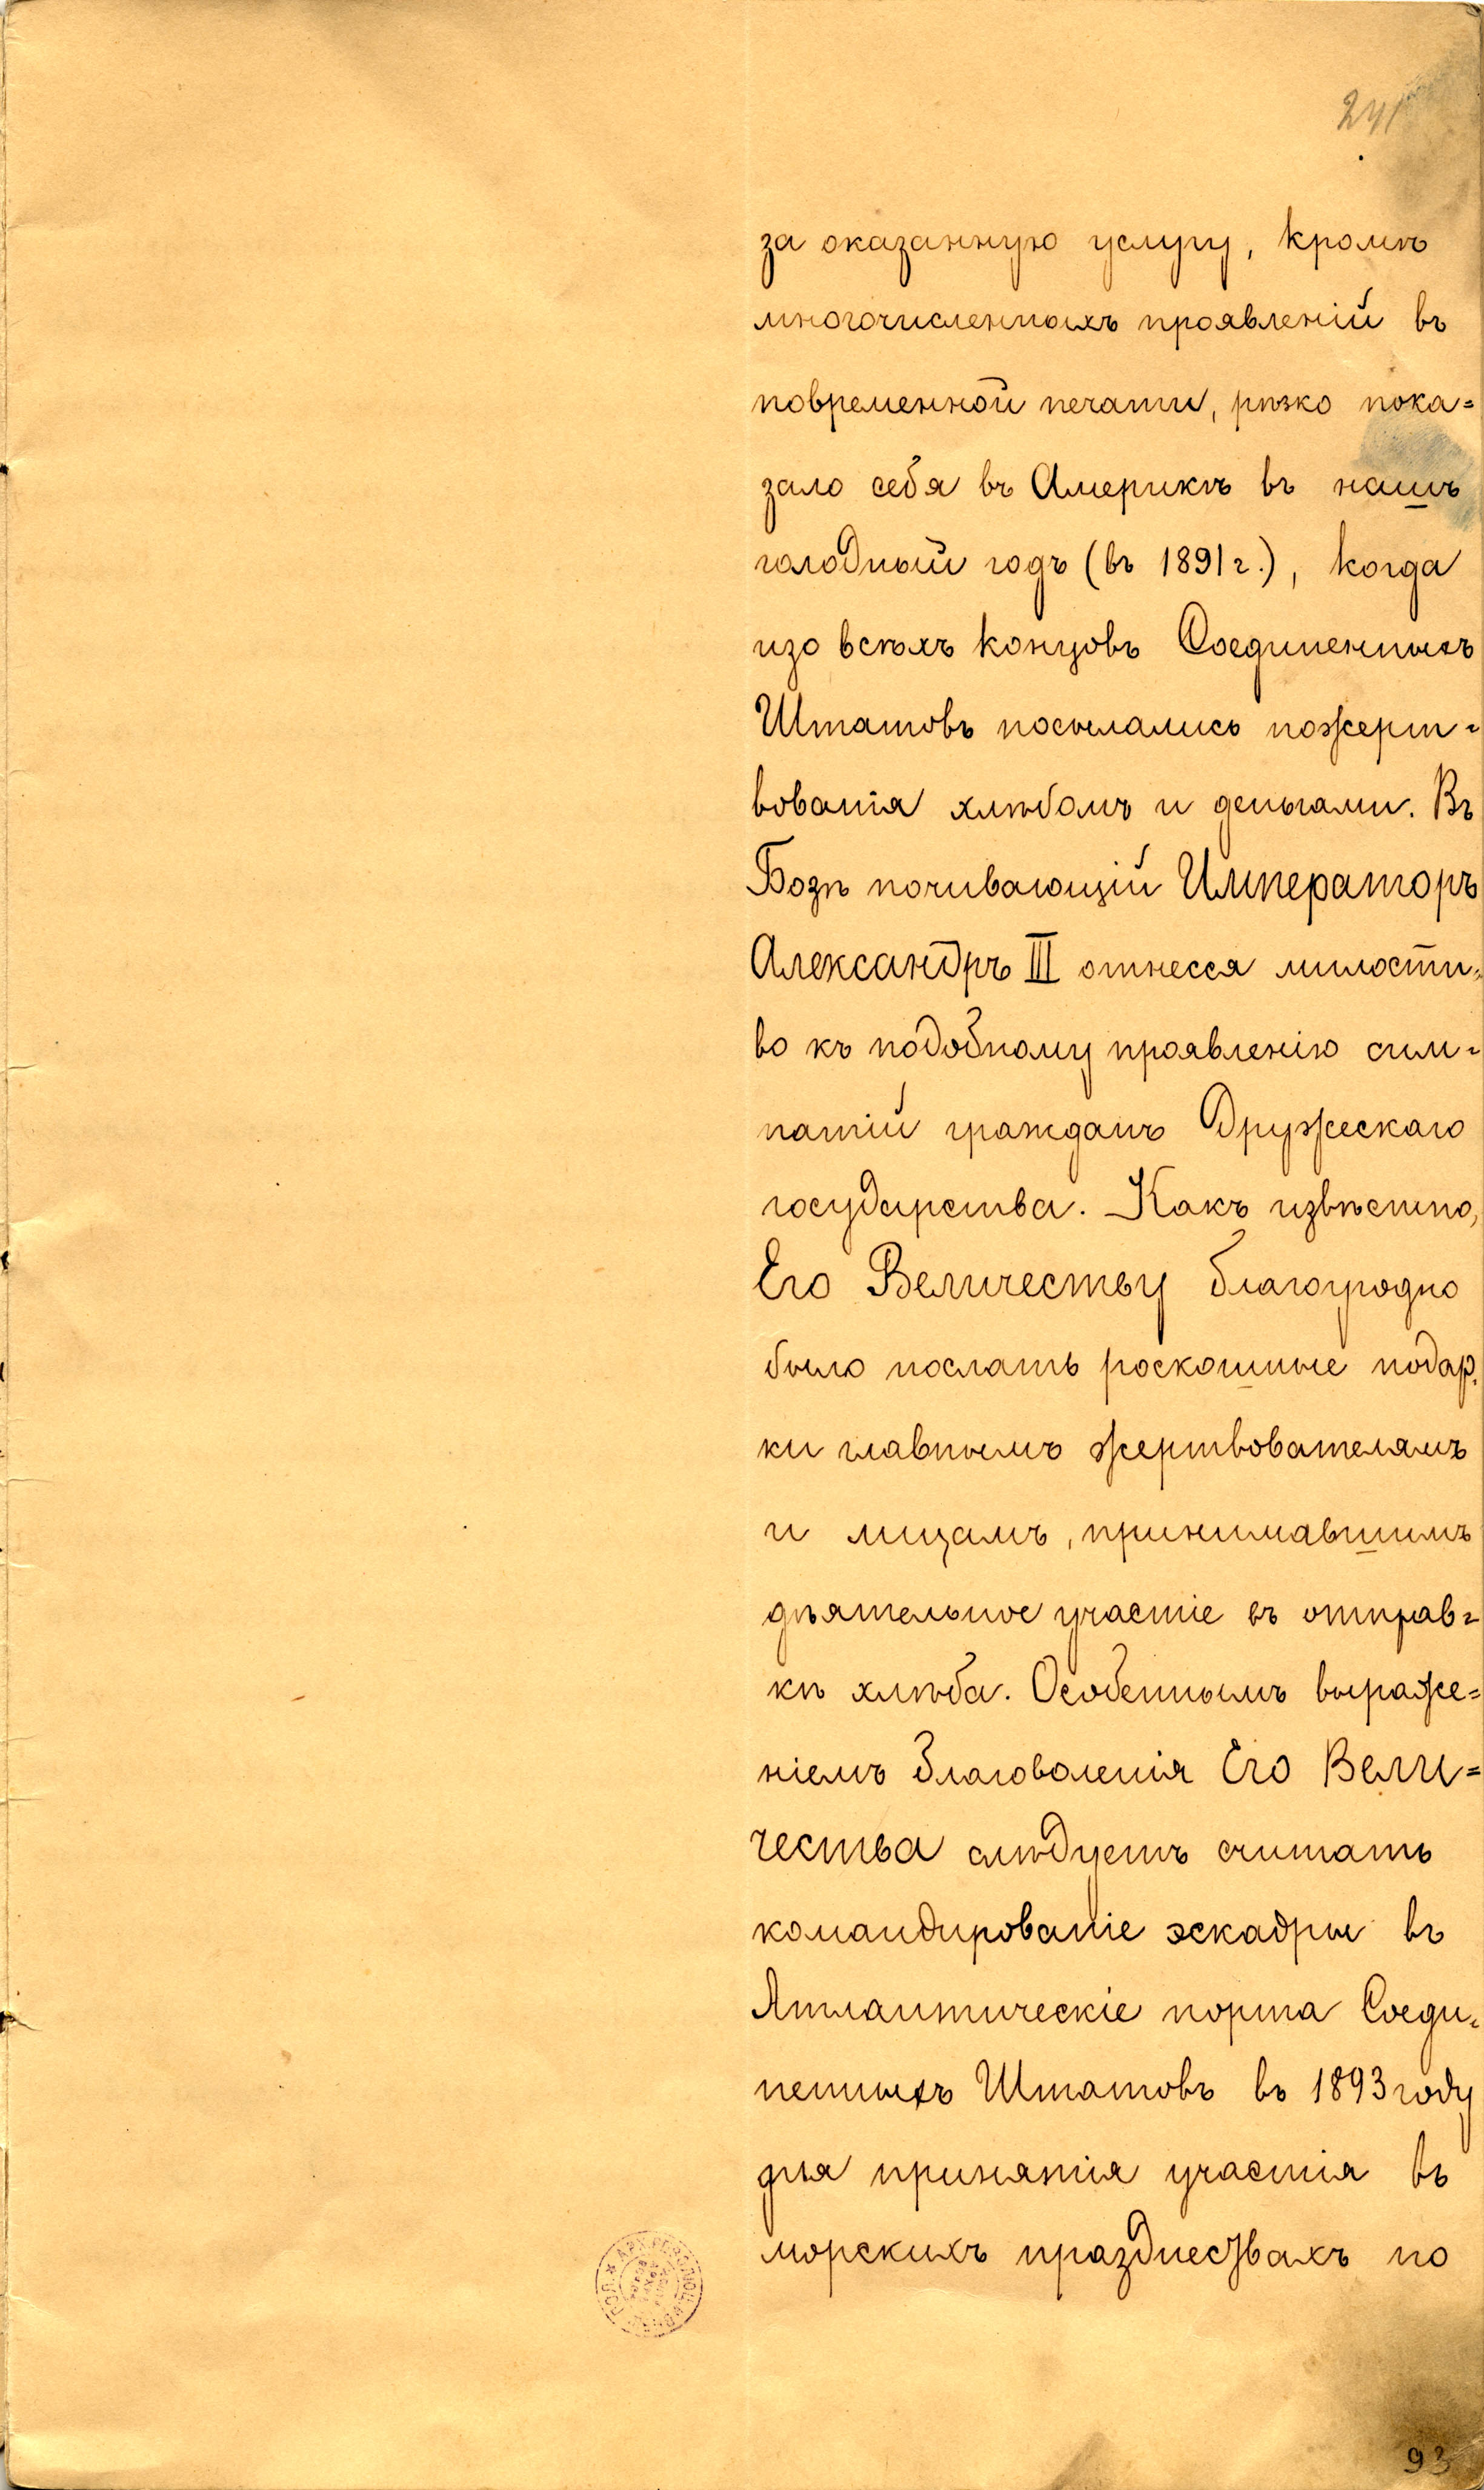 241
за оказанную услугу, кромѣ
многочисленныхъ проявленій въ
повременной печати, рѣзко пока=
зало себя въ Америкѣ въ нашъ
голодный годъ (въ 1891 г.), когда
изо всѣхъ концовъ Соединенныхъ
Штатовъ посылались пожерт=
вованія хлѣбомъ и деньгами. Въ
Бозѣ почивающій Императоръ
Александръ III отнесся милости=
во къ подобному проявленію сим=
патій гражданъ Дружескаго
государства. Какъ извѣстно,
Его Величеству благоугодно
было послать роскошные подар=
ки главнымъ жертвователямъ
и лицамъ, принимавшимъ
дѣятельное участіе въ отправ=
кѣ хлѣба. Особеннымъ выраже=
ніемъ благоволенія Его Вели=
чества слѣдуетъ считать
командированіе эскадры въ
Атлантическіе порта Соеди=
ненныхъ Штатовъ въ 1893 году
для принятія участія въ
морскихъ празднествахъ по
93